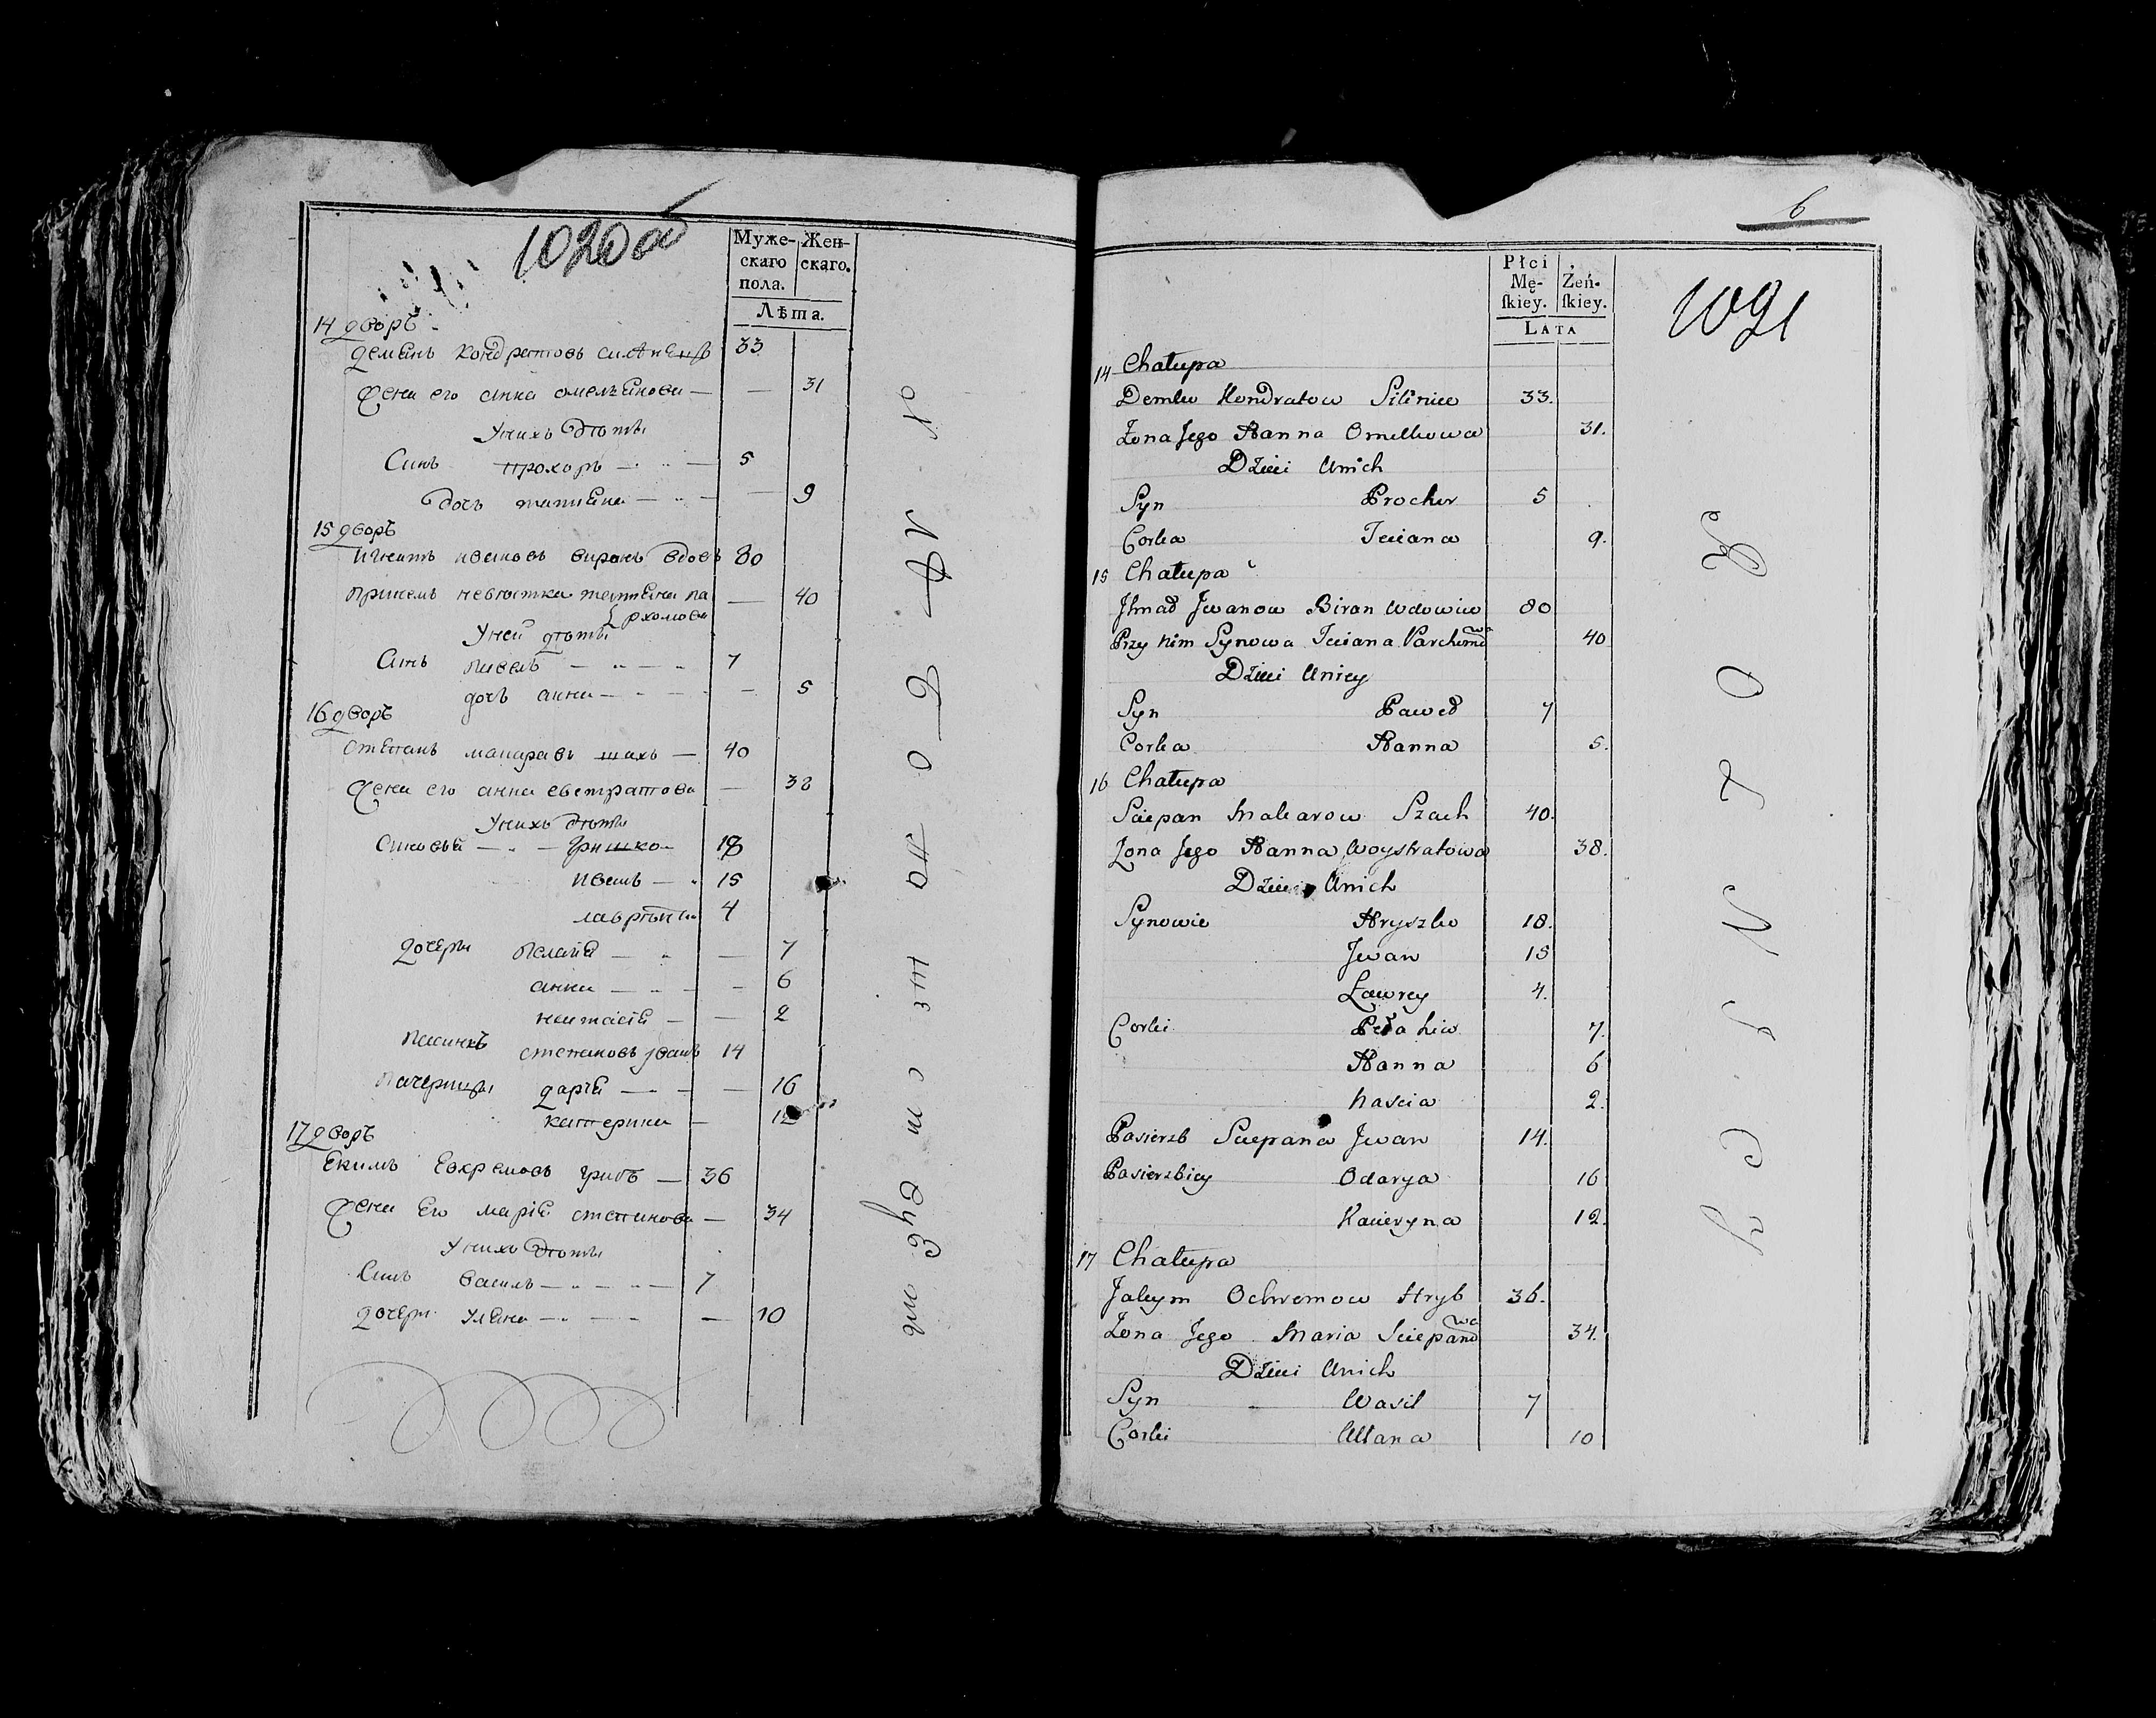 1020 об
Муже-
скаго
пола.
Жен-
скаго.
Лѣта.
14 дворъ
демьянъ кондратовъ 33
жена его анна омельянова — — 31
У нихъ дѣти
Синъ прохоръ — 5
дочъ татияна — — 9
15 дворъ
игнатъ ивановъ биранъ вдовъ 80
принемъ невѣстка татияна па — 40
рхомова
У ней дѣти
Синъ павелъ — 7
дочъ анна — — 5
16 дворъ
степанъ макаравъ шахъ — 40
жена его анна евстратова — 38
У нихъ дѣти
Синовья — гришко — 18
иванъ — 15
лаврѣнти 4
дочери пелагия — — 7
анна — — 6
настасія — — 2
пасинкъ степановъ иванъ 14
пачерицы дария — — 16
катерина — 12
17 дворъ
екимъ евхремовъ грибъ — 36
жена его марія степанова — 34
У нихъ дѣти
Синъ василь — 7
дочери уляна — — 10
6
1021
Płci
Mę-
ſkiey.
Żeń-
ſkiey.
LATA
14 Chałupa
Demko Kondratow Silinicz 33.
Żona Jego Hanna Omelkowa 31.
Dzieci Unich
Syn Prochor 5
Corka Taciana 9.
15 Chałupa
Ihnad Jwanow Biran Wdowiec 80
Przy nim Synowa Taciana Parchomowa 40
Dzieci Uniey
Syn Paweł 7
Corka Hanna 5.
16 Chałupa
Sciepan Makarow Szach 40.
Żona Jego Hanna Woystratowa 38.
Dzieci Unich
Synowie Hryszko 18.
Jwan 15
Ławrey 4.
Corki Pełahia 7.
Hanna 6
Nascia 2.
Pasierzb Sciepana Jwan 14.
Pasierzbicy Odarya 16
Kacieryna 12.
17 Chałupa
Jakym Ochremow Hryb 36.
Żona Jego Maria Sciepanowa 34.
Dzieci Unich
Syn Wasil 7
Corki Ullana 10